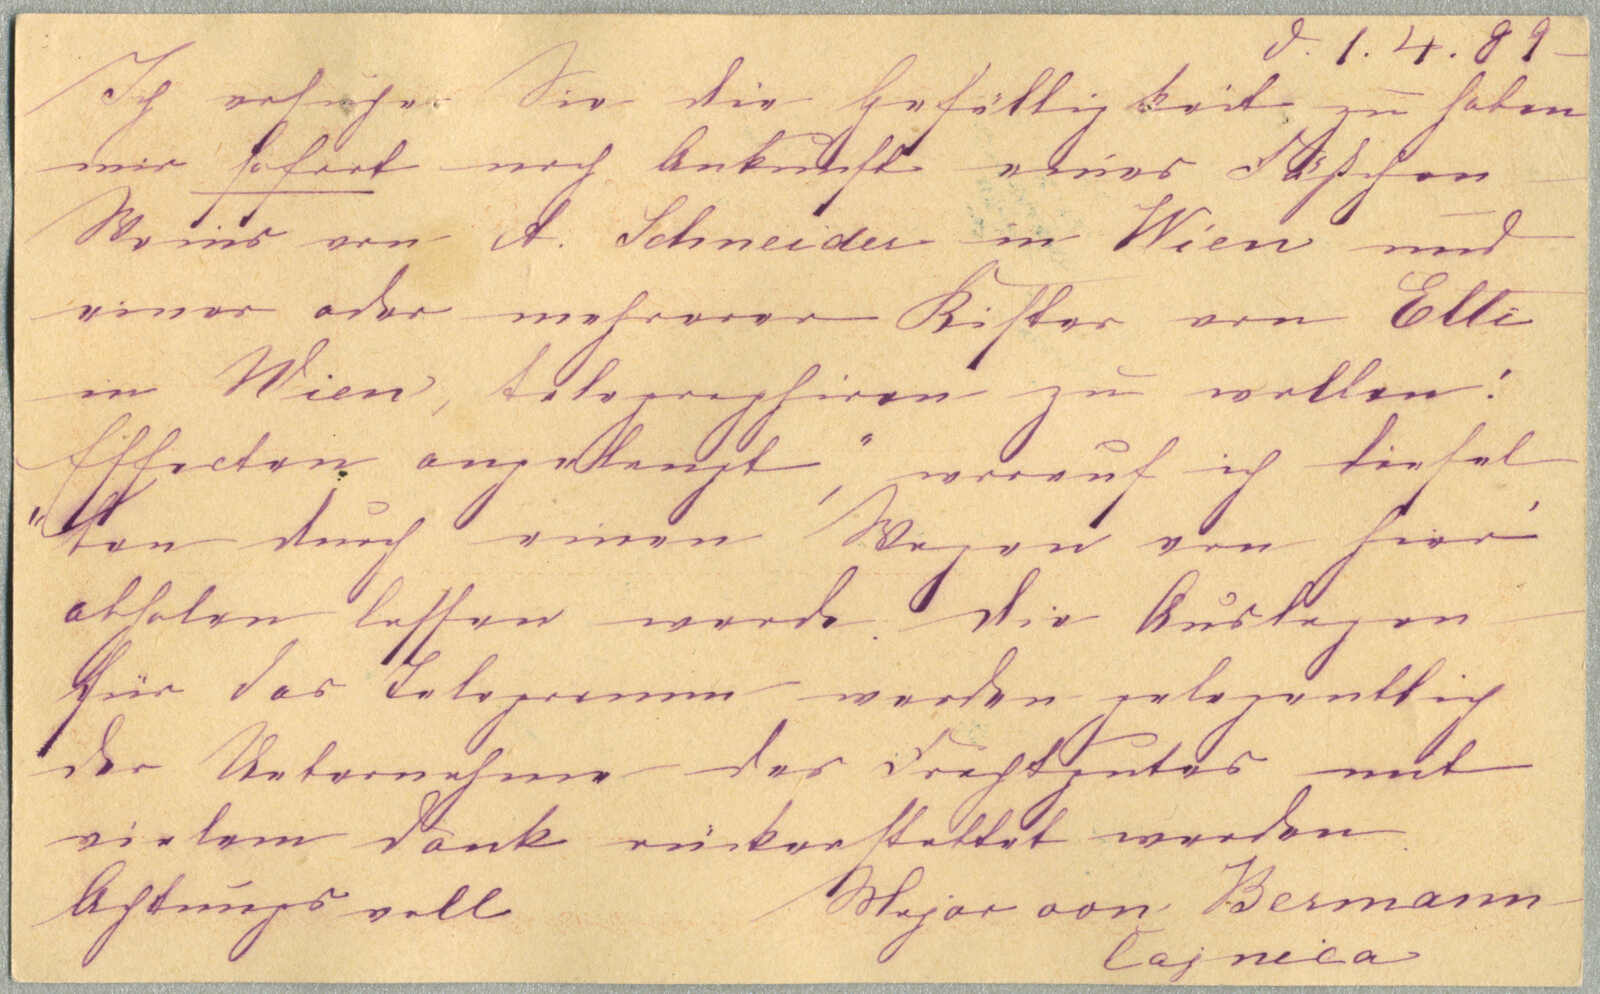 d. 1. 4. 89
Ich ersuche Sie die Gefälligkeit zu haben
mir sofort nach Ankunft eines Fäßchen
Weins von A. Schneider in Wien und
einer oder mehrerer Kisten von Elli
in Wien, telegraphiren zu wollen:
"Effecten angelangt", worauf ich diesel
"ben durch einen Wagen von hier
abholen lassen werde. Die Auslagen
für das Telegramm werden gelegentlich
der Uebernahme des Frachtgutes mit
vielem Dank rückerstattet werden.
Achtungsvoll Major von Bermann
Cajnica